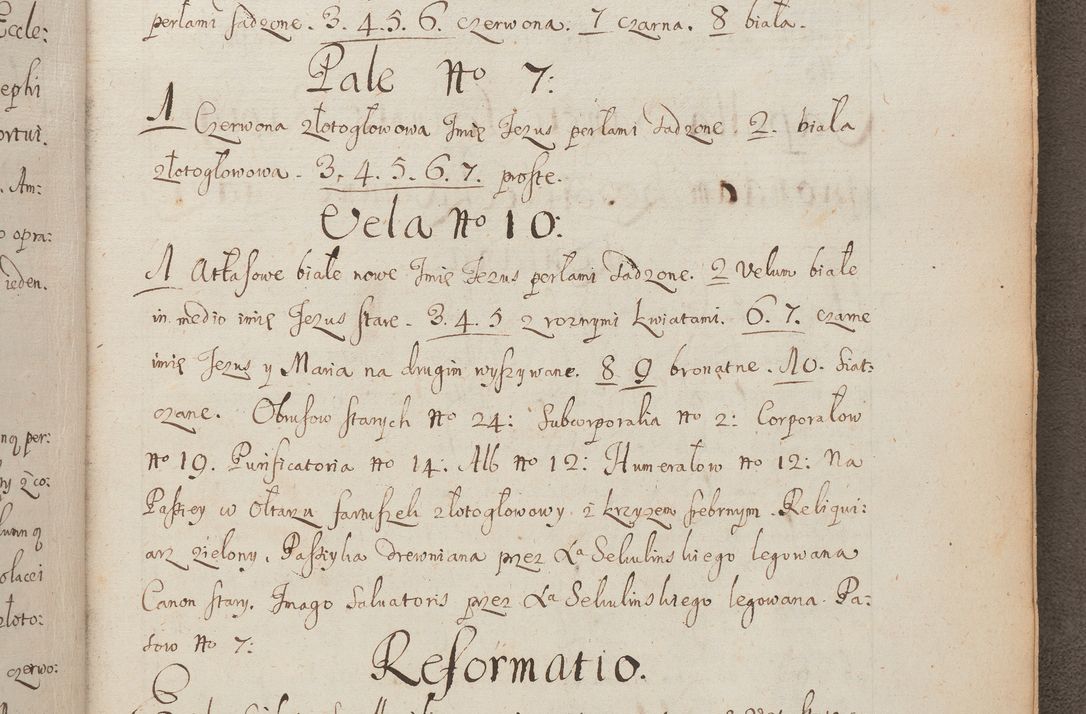 perłami sadzone. 3. 4. 5. 6. czerwona. 7 czarna. 8 biała.
Pale Nto 7:
1 Czerwona złotogłowowa Imię Jezus perłami sadzone 2. biała
złotogłowowa. 3. 4. 5. 6. 7. proste.
Vela Nto 10:
1 Atłasowe białe nowe Imię Jezus perłami sadzone. 2 Velum białe
in medio imię Jezus stare. 3. 4. 5 z roznymi kwiatami. 6. 7. czarne
imię Jezus y Maria na drugim wyszywane. 8 9 bronatne. 10. siat:
czane. Obrusow starych Nto 24: Subcorporalia Nto 2: Corporałow
Nto 19. Purificatoria Nto 14: Alb Nto 12: Humerałow Nto 12: Na
Passiey w Ołtarzu fartuszek złotogłowowy z krzyzem srebrnym. Reliqui:
arz zielony. Passiyka drewniana przez Xa Sekulinskiego legowana
Canon stary. Imago Salvatoris przez Xa Sekulinskiego legowana. Pa:
sow Nto 7:
Reformatio.